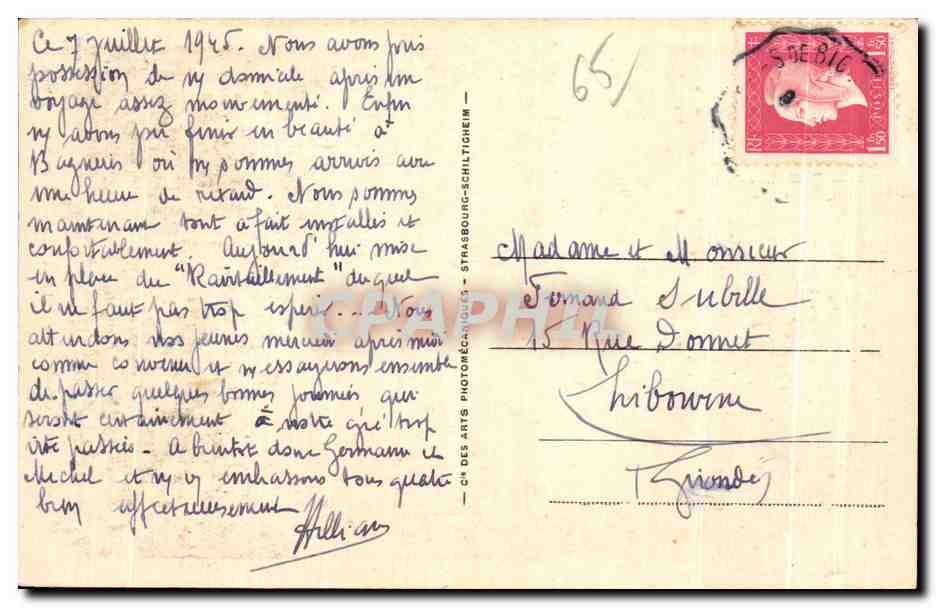 Ce 7 Juillet 1945. Nous avons pris
possession de ny domicile après un
voyage assez mouvementé. Enfin
ny avons pu finir en beauté à
Bagnères où ny sommes arrivés avec
une heure de retard. Nous sommes
maintenant tout à fait installés et
confortablement. Aujourd'hui mise
en place du "Ravitaillement" duquel
il ne faut pas trop espérer... Nous
attendons nos jeunes mercredi après midi
comme convenu et ny essayerons ensemble
de passer quelques bonnes journées qui
seront certainement à notre gré trop
vite passées. A bientôt donc Germaine et
Michel et ny vs embrassons tous quatre
bien affectueusement
65
CIE DES ARTS PHOTOMÉCANIQUES - STRASBOURG-SCHILTIGHEIM
S DE BIG
RF
POSTES
1F50
1F50
Madame et Monsieur
Fernand Subille
15 Rue Donnet
Libourne
(Gironde)
CPAPHIL